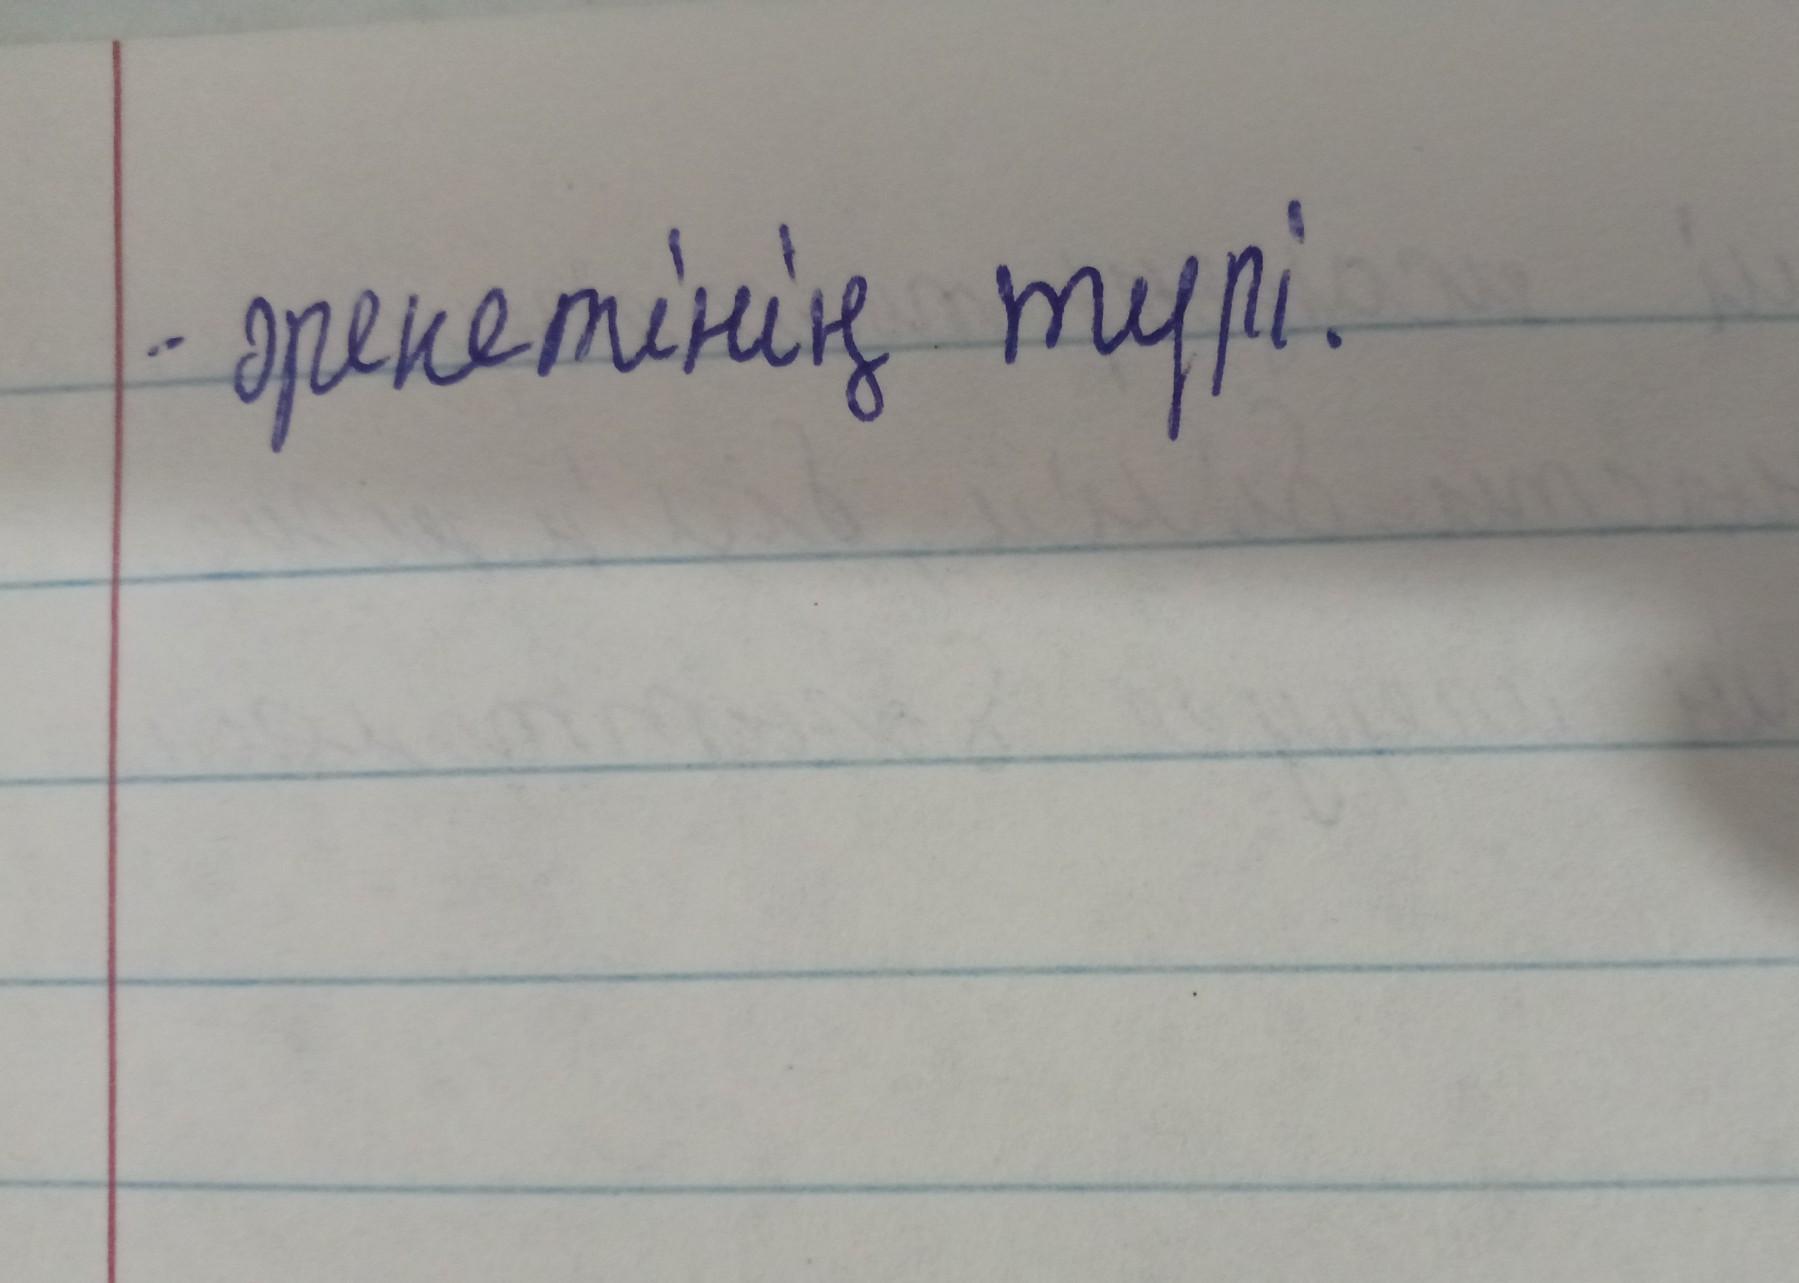 - әрекетінің түрі.